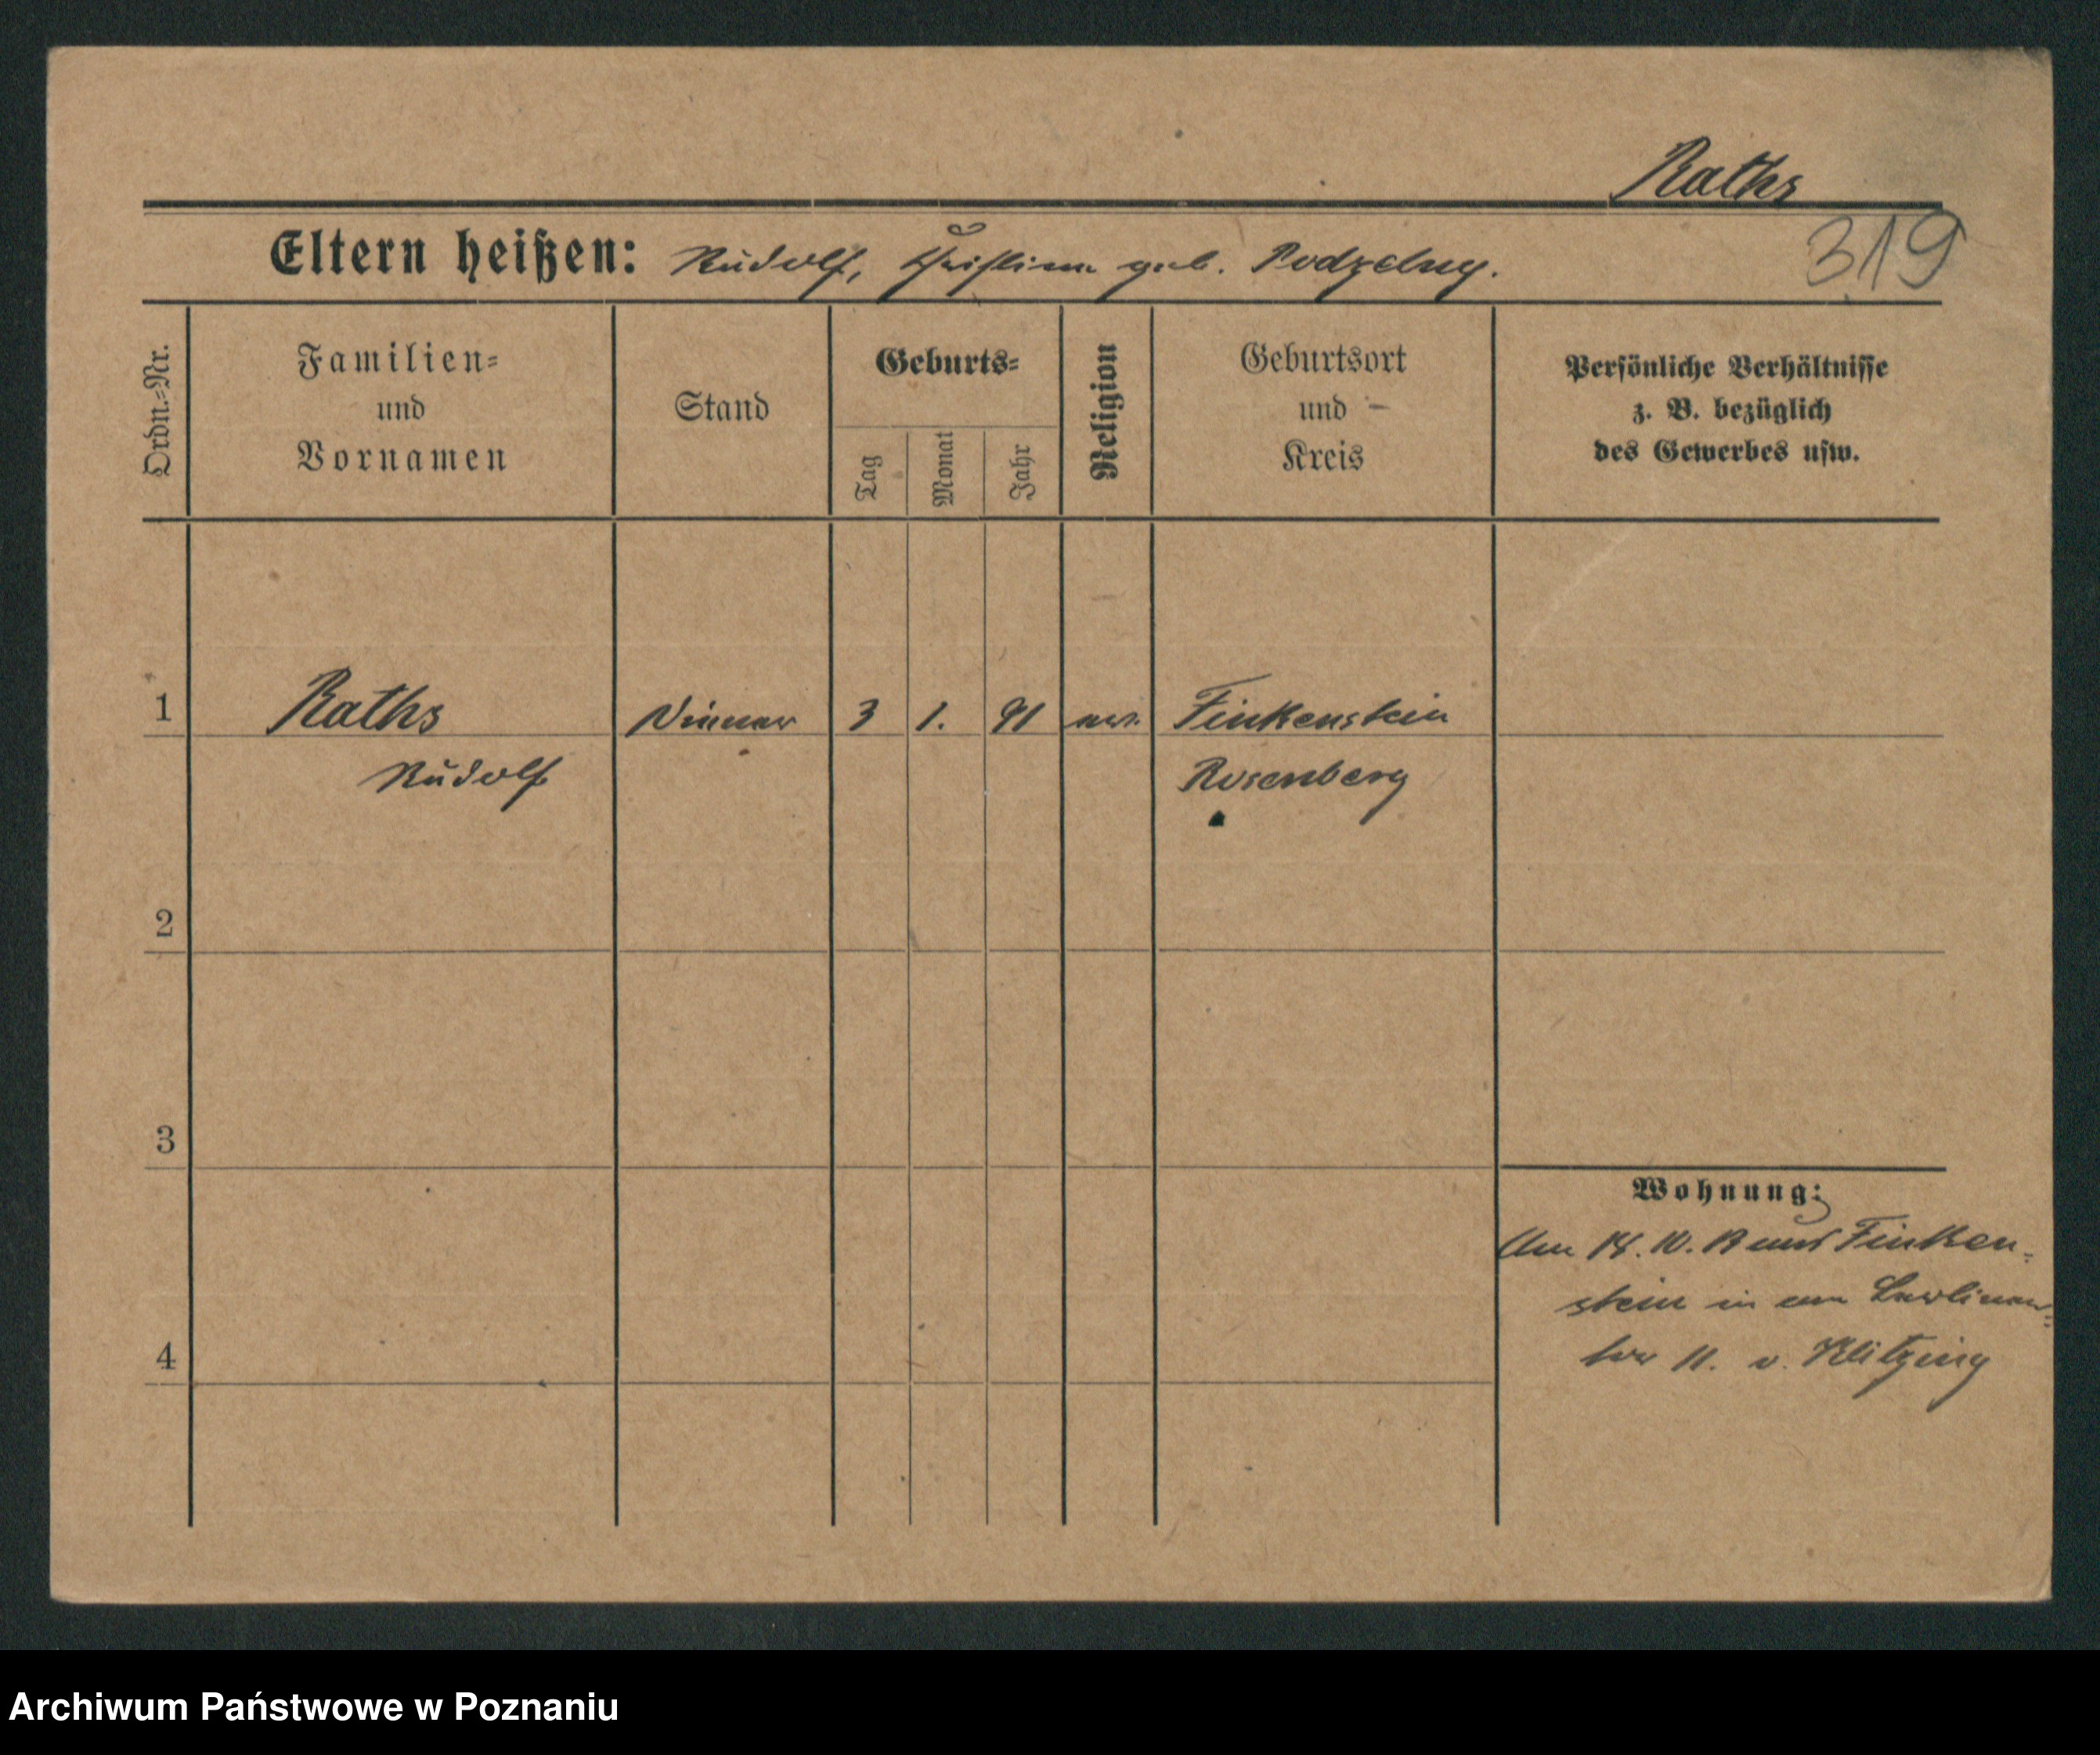 Raths
319
Eltern heißen: Rudolf, Christine geb. Podzelny.
Ordn.-Nr.
Familien-
und
Vornamen
Stand
Geburts-
Tag
Monat
Jahr
Religion
Geburtsort
und
Kreis
Persönliche Verhältnisse
z. B. bezüglich
des Gewerbes usw.
1 Raths Diener 3 1. 91 Finkenstein
Rudolf Rosenberg
2
3
4
Wohnung:
Am 14. 10. 13 aus Finken-
stein in
11. v. Klitzing
Archiwum Państwowe w Poznaniu